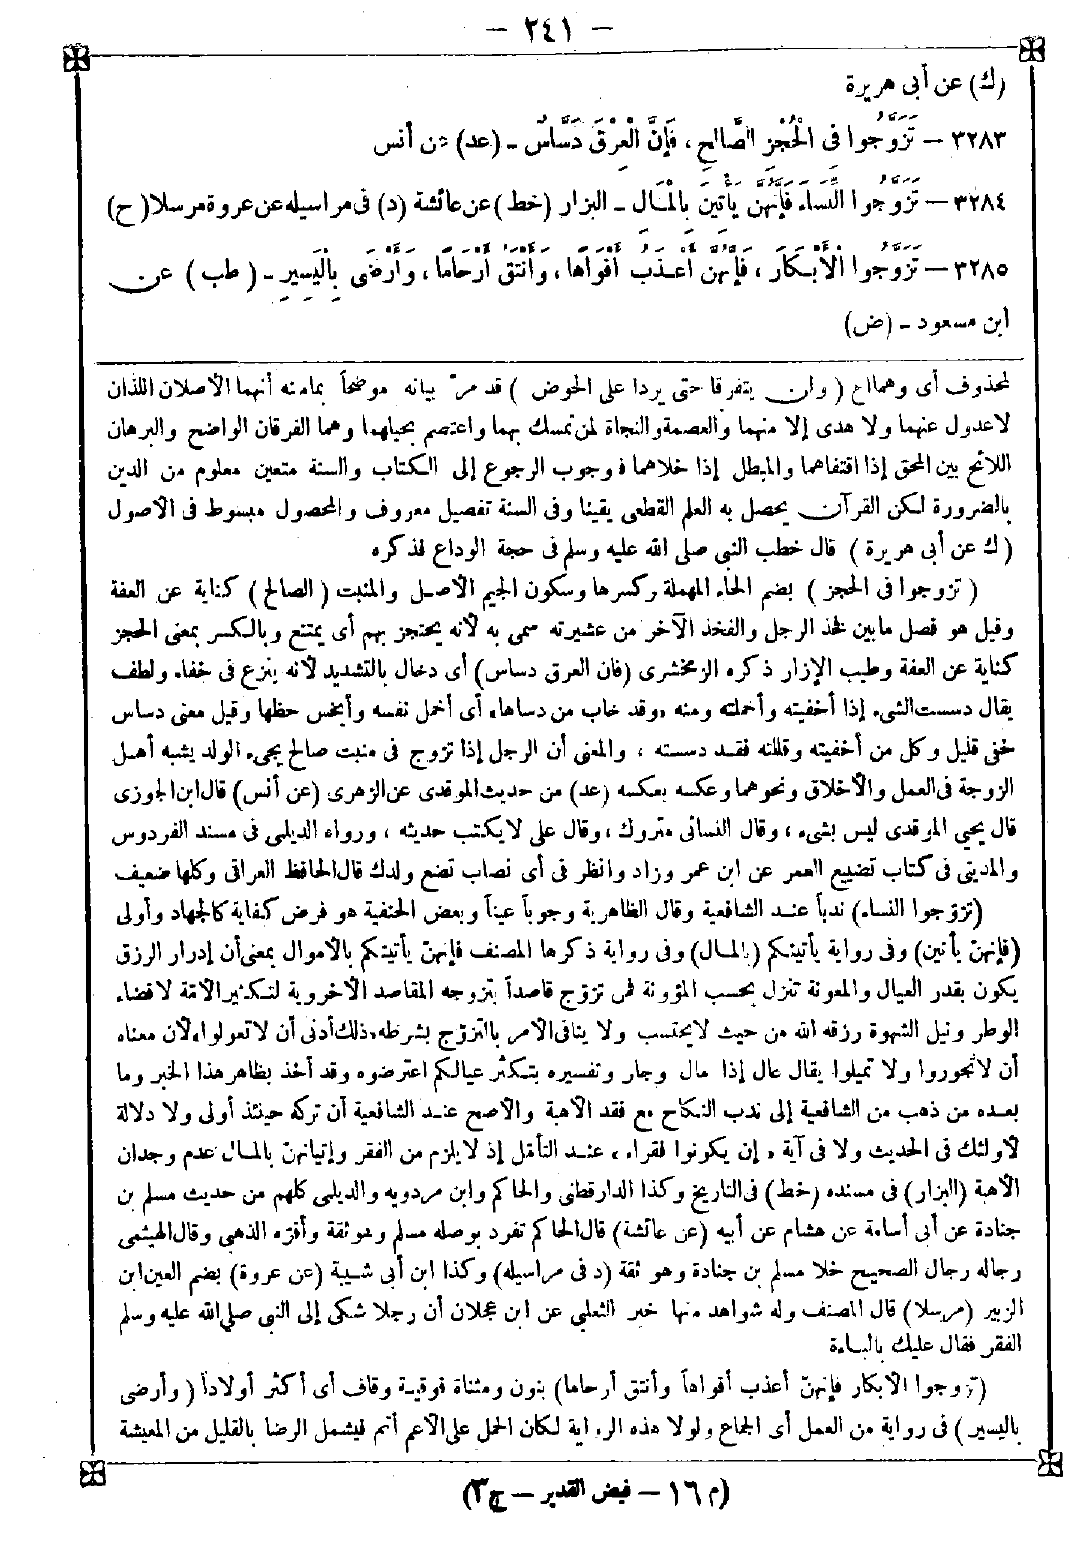 – ٢٤١ –
(ك) عن أبى هريرة
٣٢٨٣ – تَزَوَّجُوا فِى الْحُجْزِ الصَّالِحِ، فَإِنَّ الْعِرْقَ دَسَّاسٌ - (عد) عن أنس
٣٢٨٤ – تَزَوَّجُوا النِّسَاءَ فَإِنَّهُنَّ يَأْتِينَ بِالْمَالِ - البزار (خط) عن عائشة (د) فى مراسيله عن عروة مرسلا (ح)
٣٢٨٥ – تَزَوَّجُوا الْأَبْكَارَ، فَإِنَّهُنَّ أَعْذَبُ أَفْوَاهًا، وَأَنْتَقُ أَرْحَامًا، وَأَرْضَى بِالْيَسِيرِ - (طب) عن
ابن مسعود - (ض)
لمحذوف أى وهما الخ (وان يتفرقا حتى يردا على الحوض) قد مرّ بيانه موضحاً بما منه أنهما الأصلان اللذان
لاعدول عنهما ولا هدى إلا منهما والعصمة والنجاة لمن تمسك بهما واعتصم بحبلهما وهما الفرقان الواضح والبرهان
اللائح بين المحق إذا اقتفاهما والمبطل إذا خلاهما فوجوب الرجوع إلى الكتاب والسنة متعين معلوم من الدين
بالضرورة لكن القرآن يحصل به العلم القطعى يقينا وفى السنة تفصيل معروف والمحصول مبسوط فى الأصول
(ك عن أبى هريرة) قال خطب النبى صلى الله عليه وسلم فى حجة الوداع فذكره
(تزوجوا فى الحجز) بضم الحاء المهملة وكسرها وسكون الجيم الأصل والمنبت (الصالح) كناية عن العفة
وقيل هو فصل مابين فخذ الرجل والفخذ الآخر من عشيرته سمى به لأنه يحتجز بهم أى يمتنع وبالكسر بمعنى الحجز
كناية عن العفة وطيب الإزار ذكره الزمخشرى (فان العرق دساس) أى دخال بالتشديد لأنه ينزع فى خفاء ولطف
يقال دسست الشىء إذا أخفيته وأخملته ومنه «وقد خاب من دساها» أى أخمل نفسه وأبخس حظها وقيل معنى دساس
خفى قليل وكل من أخفيته وقللته فقد دسسته، والمعنى أن الرجل إذا تزوج فى منبت صالح يجىء الولد يشبه أهل
الزوجة فى العمل والأخلاق ونحوهما وعكسه بعكسه (عد) من حديث الموقدى عن الزهرى (عن أنس) قال ابن الجوزى
قال يحيى الموقدى ليس بشىء، وقال النسائى متروك، وقال على لا يكتب حديثه، ورواه الديلمى فى مسند الفردوس
والمدينى فى كتاب تضييع العمر عن ابن عمر وزاد وانظر فى أى نصاب تضع ولدك قال الحافظ العراقى وكلها ضعيف
(تزوّجوا النساء) ندباً عند الشافعية وقال الظاهرية وجوباً عيناً وبعض الحنفية هو فرض كفاية كالجهاد وأولى
(فإنهنّ يأتين) وفى رواية يأتينكم (بالمال) وفى رواية ذكرها المصنف فإنهنّ يأتينكم بالأموال بمعنى أن إدرار الرزق
يكون بقدر العيال والمعونة تنزل بحسب المؤونة فمن تزوّج قاصداً بتزوجه المقاصد الأخروية لتكثير الأمة لا قضاء
الوطر ونيل الشهوة رزقه الله من حيث لا يحتسب ولا ينافى الأمر بالتزوّج بشرطه «ذلك أدنى أن لا تعولوا» لأن معناه
أن لا تجوروا ولا تميلوا يقال عال إذا مال وجار وتفسيره بتكثر عيالكم اعترضوه وقد أخذ بظاهر هذا الخبر وما
بعده من ذهب من الشافعية إلى ندب النكاح مع فقد الأهبة والأصح عند الشافعية أن تركه حينئذ أولى ولا دلالة
لأولئك فى الحديث ولا فى آية «إن يكونوا فقراء» عند التأمل إذ لا يلزم من الفقر وإتيانهنّ بالمال عدم وجدان
الأهبة (البزار) فى مسنده (خط) فى التاريخ وكذا الدارقطنى والحاكم وابن مردويه والديلمى كلهم من حديث مسلم بن
جنادة عن أبى أسامة عن هشام عن أبيه (عن عائشة) قال الحاكم تفرد بوصله مسلم وهو ثقة وأقره الذهبى وقال الهيثمى
رجاله رجال الصحيح خلا مسلم بن جنادة وهو ثقة (د فى مراسيله) وكذا ابن أبى شيبة (عن عروة) بضم العين ابن
الزبير (مرسلا) قال المصنف وله شواهد منها خبر الثعلبى عن ابن عجلان أن رجلا شكى إلى النبى صلى الله عليه وسلم
الفقر فقال عليك بالباءة
(تزوجوا الأبكار فإنهنّ أعذب أفواهاً وأنتق أرحاما) بنون ومثناة فوقية وقاف أى أكثر أولاداً (وأرضى
باليسير) فى رواية من العمل أى الجماع ولولا هذه الرواية لكان الحمل على الأعم أتم فيشمل الرضا بالقليل من المعيشة
(م ١٦ – فيض القدير – ج ٣)